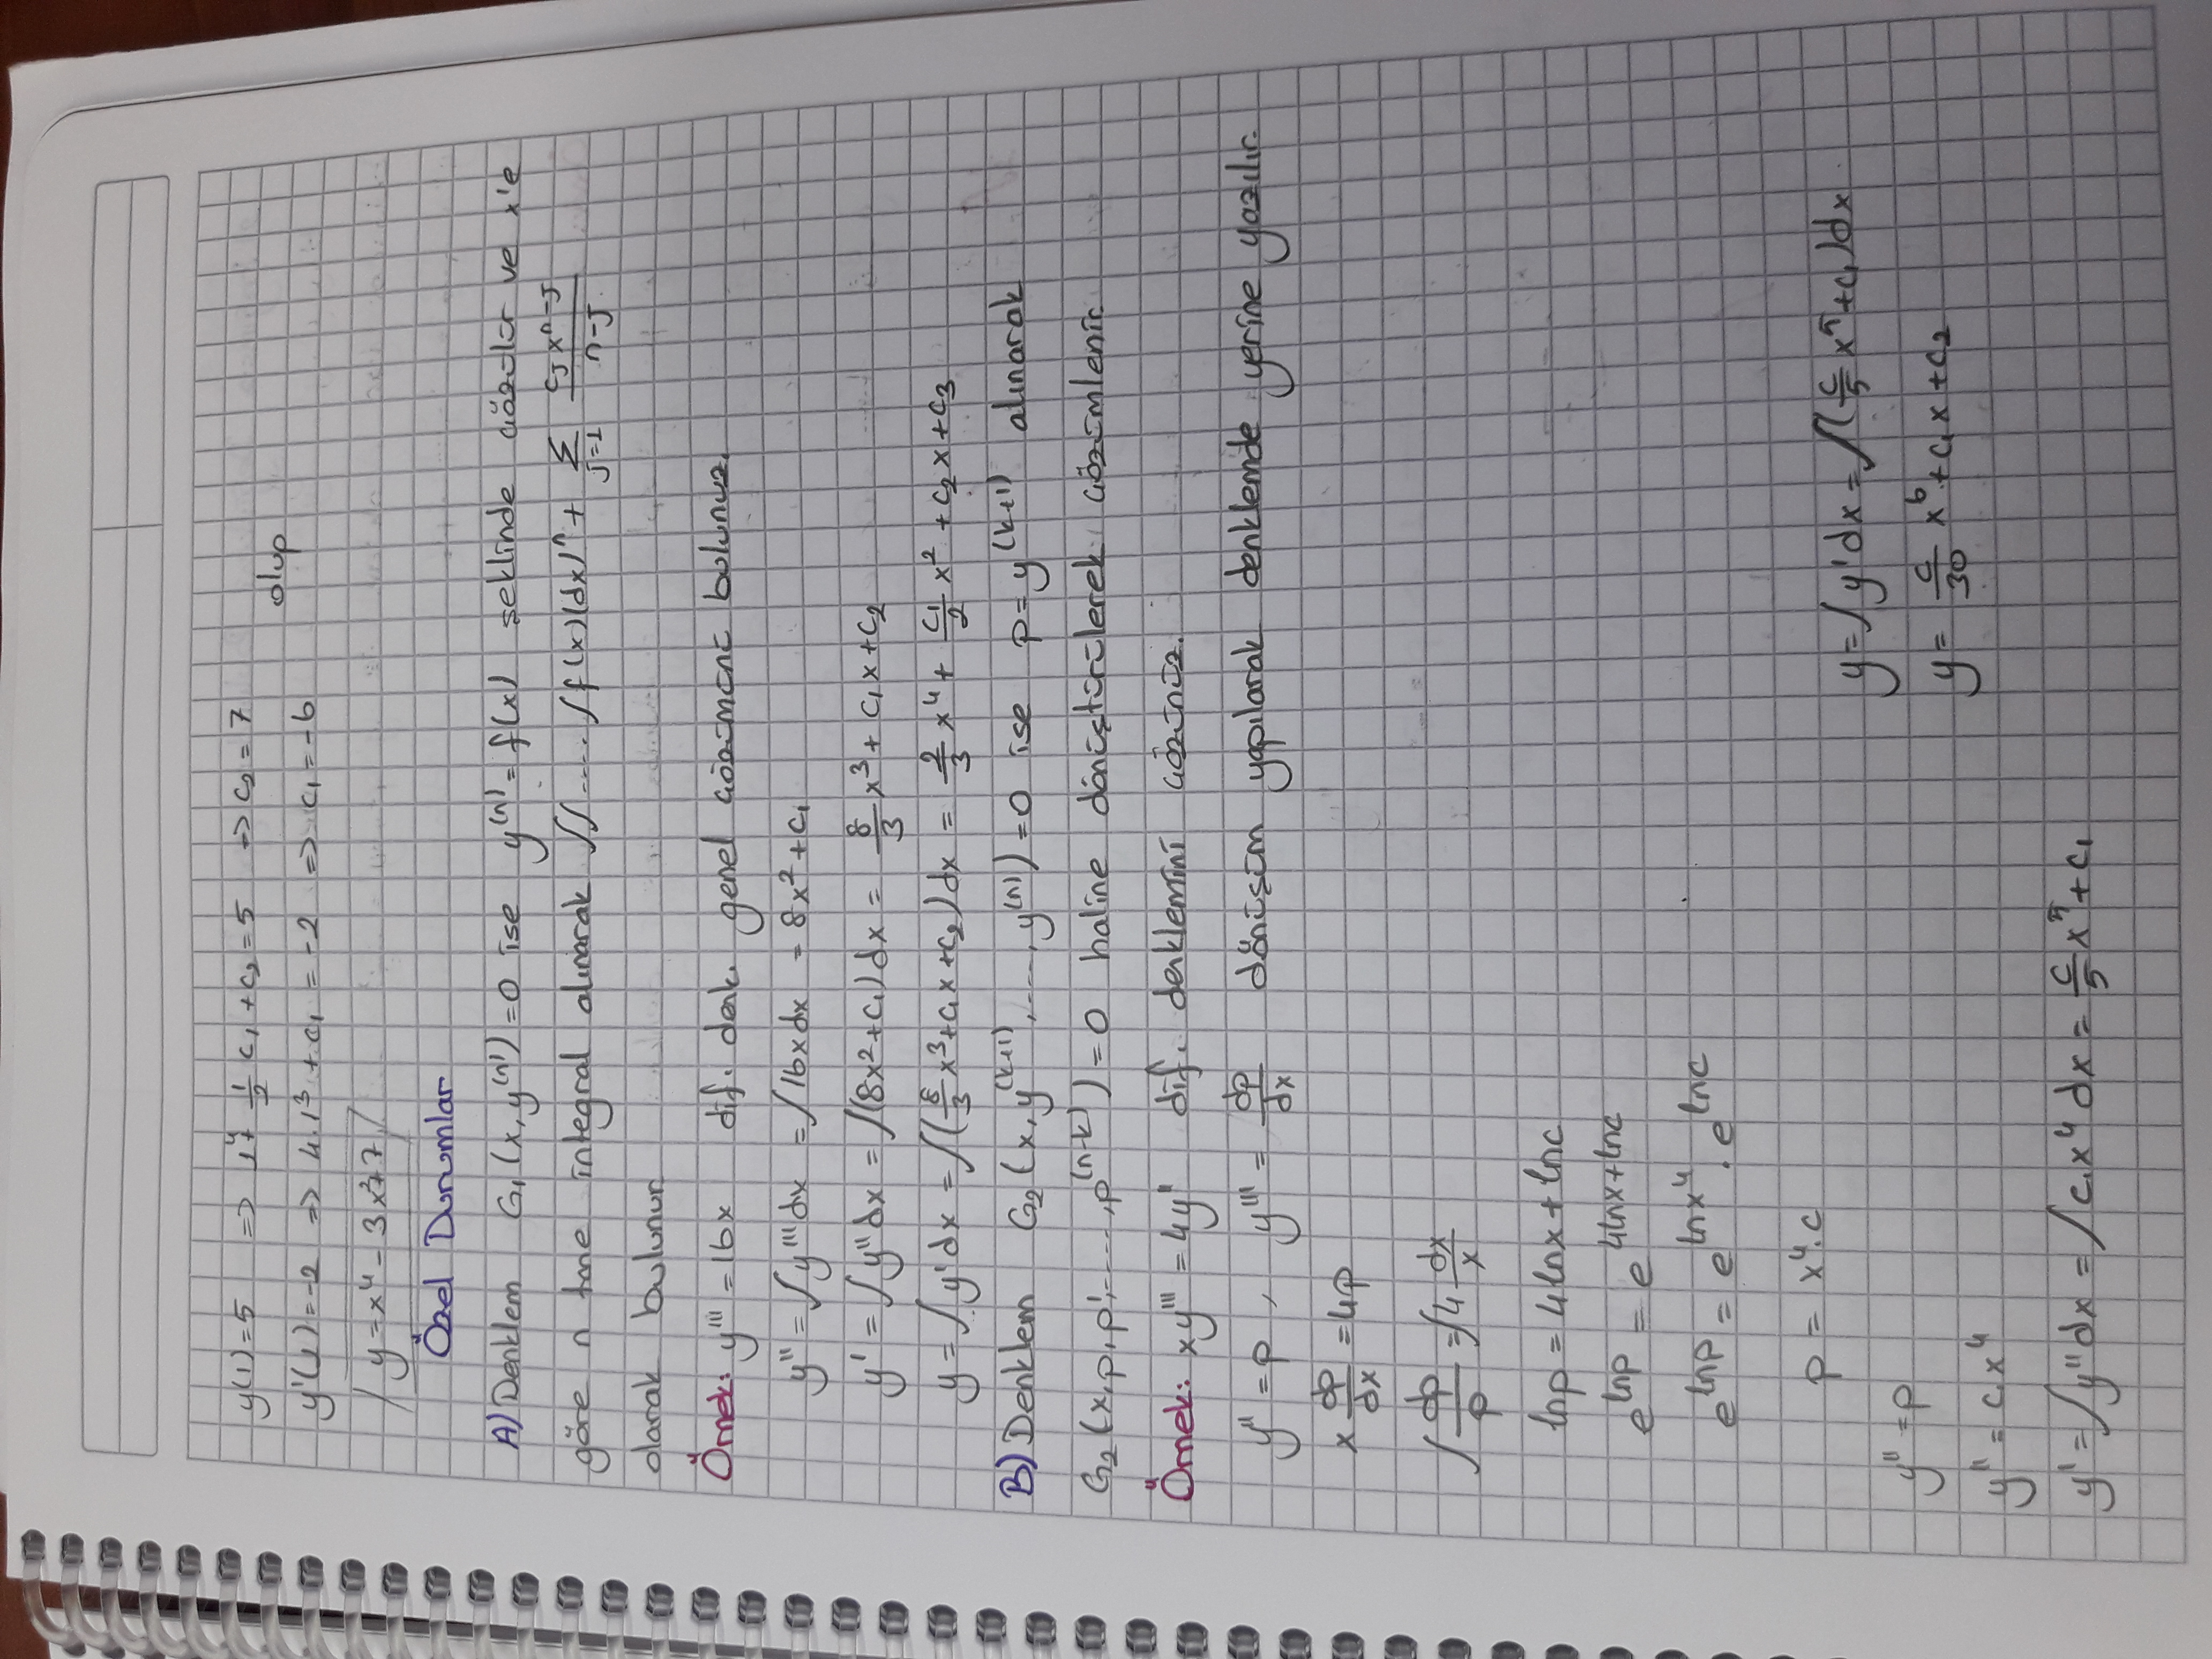 y(1)=5 => 1⁴+ 1/2 c₁ + c₂ = 5 => c₂ = 7
olup
y'(1)=-2 => 4.1³ + c₁ = -2 => c₁ = -6
y=x⁴-3x²+7
Özel Durumlar
A) Denklem G₁(x, y⁽ⁿ⁾)=0 ise y⁽ⁿ⁾=f(x) şeklinde çözülür ve x'e
göre n tane integral alınarak ∫∫....∫f(x)(dx)ⁿ + Σ_{j=1} (cⱼ xⁿ⁻ʲ)/(n-j)
olarak bulunur
Örnek: y''' = 16x dif. denk. genel çözümünü bulunuz.
y'' = ∫y'''dx = ∫16xdx = 8x² + c₁
y' = ∫y''dx = ∫(8x²+c₁)dx = 8/3 x³ + c₁x + c₂
y = ∫y'dx = ∫(8/3 x³+c₁x+c₂)dx = 2/3 x⁴ + c₁/2 x² + c₂x + c₃
B) Denklem G₂(x, y⁽ᵏ⁺¹⁾, ...., y⁽ⁿ⁾)=0 ise p=y⁽ᵏ⁺¹⁾ alınarak
G₂(x,p,p',.....,p⁽ⁿ⁻ᵏ⁾)=0 haline dönüştürülerek çözümlenir.
Örnek: xy''' = 4y'' dif. denklemini çözünüz.
y'' = p , y''' = dp/dx dönüşüm yapılarak denklemde yerine yazılır.
x dp/dx = 4p
∫ dp/p = ∫4 dx/x
lnp = 4lnx + lnc
e^(lnp) = e^(4lnx+lnc)
e^(lnp) = e^(lnx⁴) . e^(lnc)
p = x⁴.c
y'' = p
y'' = c.x⁴
y' = ∫y''dx = ∫c.x⁴dx = c/5 x⁵ + c₁
y = ∫y'dx = ∫(c/5 x⁵ + c₁)dx
y = c/30 x⁶ + c₁x + c₂